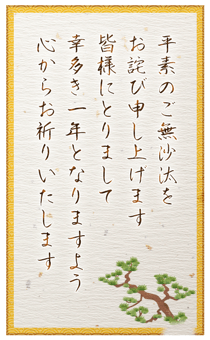 平素のご無沙汰を
お詫び申し上げます
皆様にとりまして
幸多き一年となりますよう
心からお祈りいたします